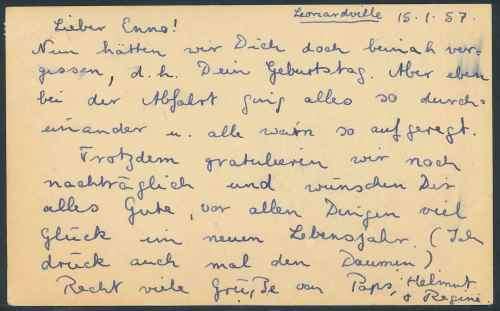 Leonardville 15.1.57.
Lieber Enno!
Nun hätten wir Dich doch beinah ver-
gessen, d.h. Dein Geburtstag. Aber eben
bei der Abfahrt ging alles so durch-
einander u. alle warn so aufgeregt.
Trotzdem gratulieren wir noch
nachträglich und wünschen Dir
alles Gute, vor allen Dingen viel
Glück im neuen Lebensjahr. (Ich
drück auch mal den Daumen)
Recht viele Grüße von Paps, Helmut
& Regine.